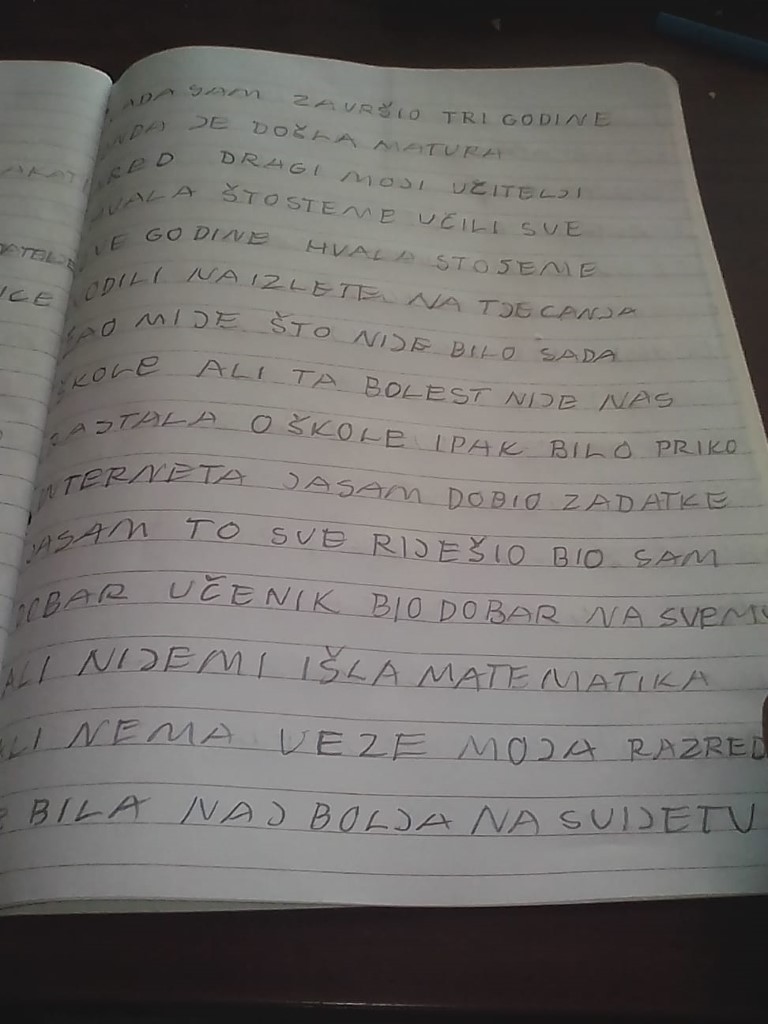 ADA SAM ZAVRŠIO TRI GODINE
NDA JE DOŠLA MATURA
RED DRAGI MOJI UČITELJI
VALA ŠTOSTEME UČILI SVE
VE GODINE HVALA STOSEME
ODILI NA IZLETE NA TJECANJA
AO MIJE ŠTO NIJE BILO SADA
ŠKOLE ALI TA BOLEST NIJE NAS
O ŠKOLE IPAK BILO PRIKO
INTERNETA JASAM DOBIO ZADATKE
JASAM TO SVE RIJEŠIO BIO SAM
DOBAR UČENIK BIO DOBAR NA SVEMU
ALI NIJEMI IŠLA MATEMATIKA
LI NEMA VEZE MOJA RAZRED
E BILA NAJ BOLJA NA SVIJETU